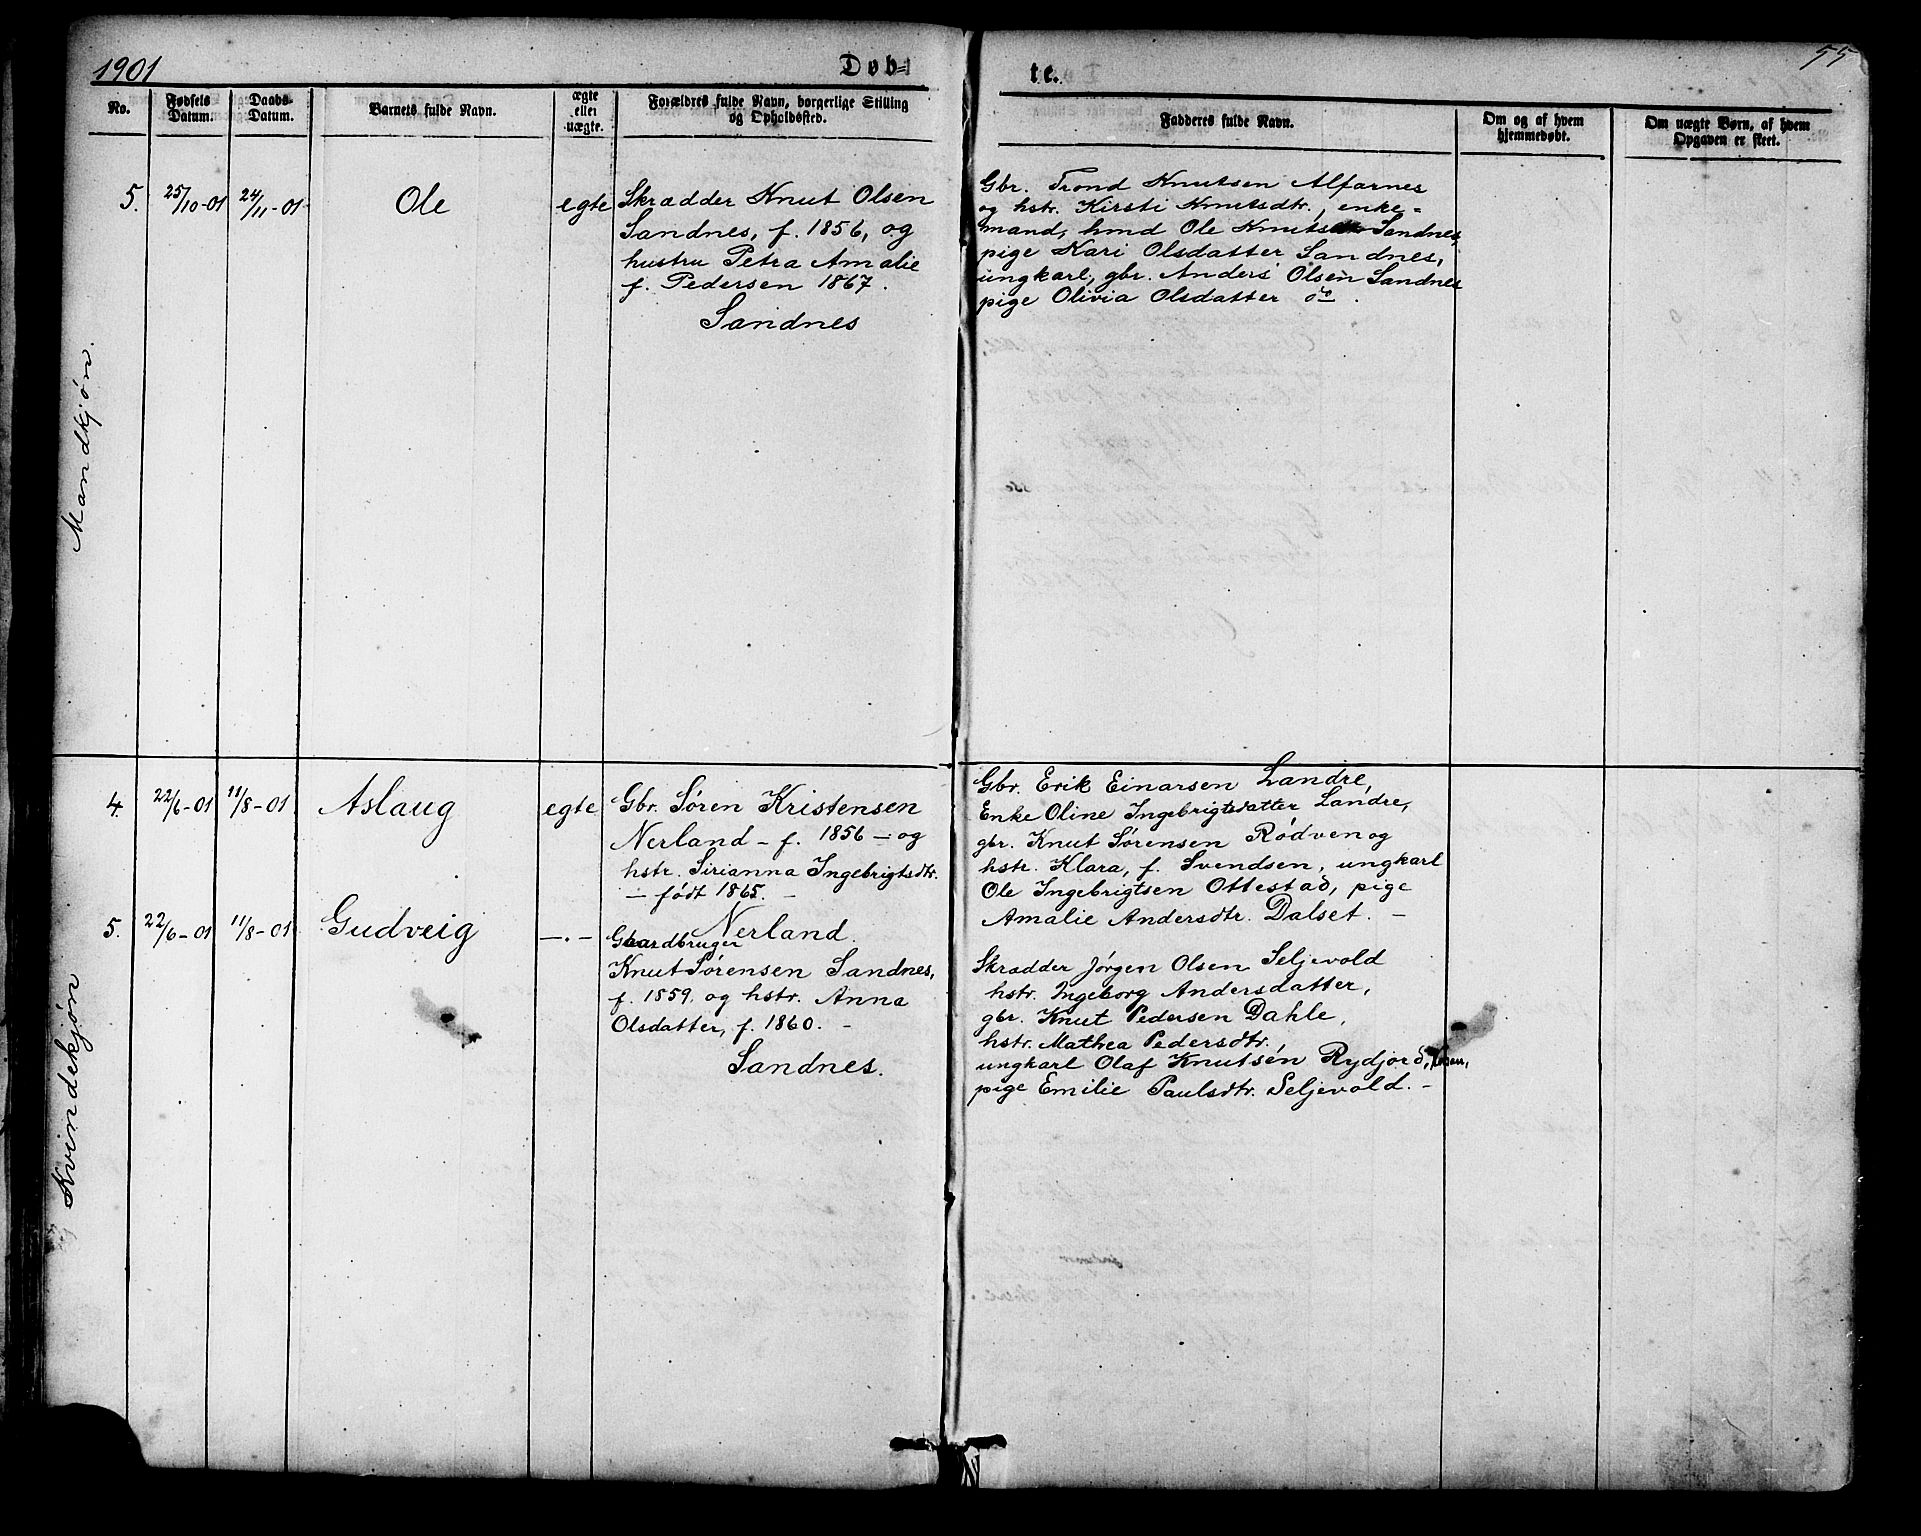 1901
Døb=
te.
55
No.
Fødsels Datum.
Daabs- Datum.
Barnets fulde Navn.
ægte eller uægte.
Forældres fulde Navn, borgerlige Stilling og Opholdssted.
Fadderes fulde Navn.
Om og af hvem hjemmedøbt.
Om uægte Børn, af hvem Opgaven er skeet.
Mandkjøn.
5.
25/10-01
24/11-01
Ole
egte
Skrædder Knut Olsen
Sandnes, f. 1856, og
hustru Petra Amalie
f. Pedersen 1867.
Sandnes
Gbr. Trond Knutsen Alfarnes
og hstr. Kirsti Knutsdtr., enke=
mand, hmd Ole Knutsen Sandnes,
pige Kari Olsdatter Sandnes,
ungkarl, gbr. Anders Olsen Sandnes
pige Olivia Olsdatter do.
Kvindekjøn
4.
22/6-01
11/8-01
Aslaug
egte
Gbr. Søren Kristensen
Nerland - f. 1856 - og
hstr. Sirianna Ingebrigtsdtr.
- født 1865. -
Nerland.
Gbr. Erik Einarsen Landre,
Enke Oline Ingebrigtsdatter Landre,
gbr. Knut Sørensen Rødven og
hstr. Klara, f. Svendsen, ungkarl
Ole Ingebrigtsen Ottestad, pige
Amalie Andersdtr. Dalset. -
5.
22/6-01
11/8-01
Gudveig
-.-
Gaardbruger
Knut Sørensen Sandnes,
f. 1859. og hstr. Anna
Olsdatter, f. 1860. -
Sandnes.
Skrædder Jørgen Olsen Seljevold
hstr. Ingeborg Andersdatter,
gbr. Knut Pedersen Dahle,
hstr. Mathea Pedersdtr.
ungkarl Olaf Knutsen Rydjord,
pige Emilie Paulsdtr. Seljevold. -